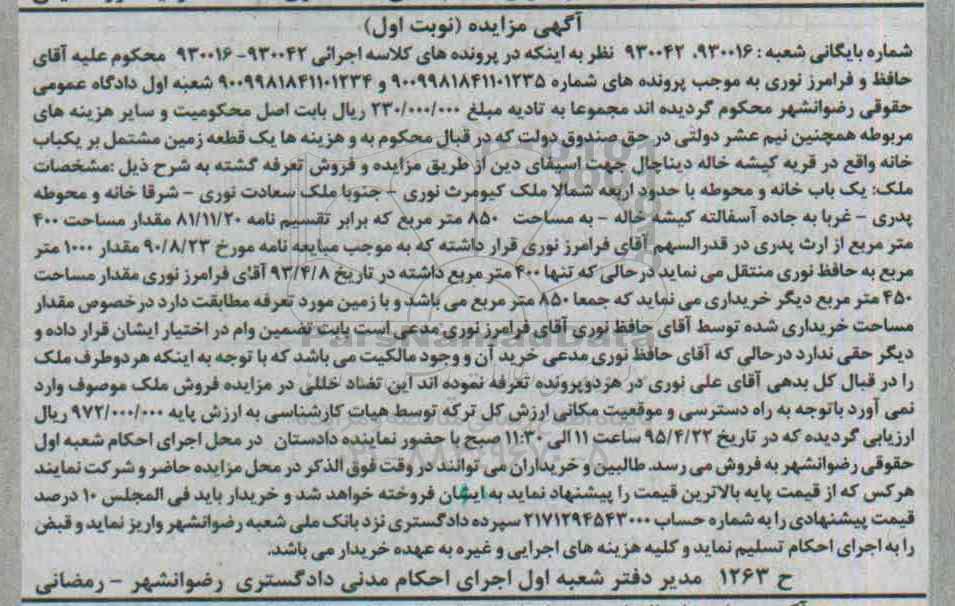 آگهی مزایده (نوبت اول)
شماره بایگانی شعبه: ۹۳۰۰۱۶، ۹۳۰۰۴۲ نظر به اینکه در پرونده های کلاسه اجرائی ۹۳۰۰۴۲- ۹۳۰۰۱۶ محکوم علیه آقای
حافظ و فرامرز نوری به موجب پرونده های شماره ۹۰۰۹۹۸۱۸۴۱۱۰۱۲۳۵ و ۹۰۰۹۹۸۱۸۴۱۱۰۱۲۳۴ شعبه اول دادگاه عمومی
حقوقی رضوانشهر محکوم گردیده اند مجموعا به تادیه مبلغ ۲۳۰/۰۰۰/۰۰۰ ریال بابت اصل محکومیت و سایر هزینه های
مربوطه همچنین نیم عشر دولتی در حق صندوق دولت که در قبال محکوم به و هزینه ها یک قطعه زمین مشتمل بر یکباب
خانه واقع در قریه کیشه خاله دیناچال جهت اسیفای دین از طریق مزایده و فروش تعرفه گشته به شرح ذیل :مشخصات
ملک: یک باب خانه و محوطه با حدود اربعه شمالا ملک کیومرث نوری - جنوبا ملک سعادت نوری - شرقا خانه و محوطه
پدری - غربا به جاده آسفالته کیشه خاله - به مساحت ۸۵۰ متر مربع که برابر تقسیم نامه ۸۱/۱۱/۲۰ مقدار مساحت ۴۰۰
متر مربع از ارث پدری در قدرالسهم آقای فرامرز نوری قرار داشته که به موجب مبایعه نامه مورخ ۹۰/۸/۲۳ مقدار ۱۰۰۰ متر
مربع به حافظ نوری منتقل می نماید درحالی که تنها ۴۰۰ متر مربع داشته در تاریخ ۹۳/۴/۸ آقای فرامرز نوری مقدار مساحت
۴۵۰ متر مربع دیگر خریداری می نماید که جمعا ۸۵۰ متر مربع می باشد و با زمین مورد تعرفه مطابقت دارد درخصوص مقدار
مساحت خریداری شده توسط آقای حافظ نوری آقای فرامرز نوری مدعی است بابت تضمین وام در اختیار ایشان قرار داده و
دیگر حقی ندارد درحالی که آقای حافظ نوری مدعی خرید آن و وجود مالکیت می باشد که با توجه به اینکه هردوطرف ملک
را در قبال کل بدهی آقای علی نوری در هردوپرونده تعرفه نموده اند این تضاد خللی در مزایده فروش ملک موصوف وارد
نمی آورد باتوجه به راه دسترسی و موقعیت مکانی ارزش کل ترکه توسط هیات کارشناسی به ارزش پایه ۹۷۲/۰۰۰/۰۰۰ ریال
ارزیابی گردیده که در تاریخ ۹۵/۴/۲۲ ساعت ۱۱ الی ۱۱:۳۰ صبح با حضور نماینده دادستان در محل اجرای احکام شعبه اول
حقوقی رضوانشهر به فروش می رسد. طالبین و خریداران می توانند در وقت فوق الذکر در محل مزایده حاضر و شرکت نمایند
هرکس که از قیمت پایه بالاترین قیمت را پیشنهاد نماید به ایشان فروخته خواهد شد و خریدار باید فی المجلس ۱۰ درصد
قیمت پیشنهادی را به شماره حساب ۲۱۷۱۲۹۴۵۴۳۰۰۰ سپرده دادگستری نزد بانک ملی شعبه رضوانشهر واریز نماید و قبض
را به اجرای احکام تسلیم نماید و کلیه هزینه های اجرایی و غیره به عهده خریدار می باشد.
ح ۱۲۶۳ مدیر دفتر شعبه اول اجرای احکام مدنی دادگستری رضوانشهر - رمضانی